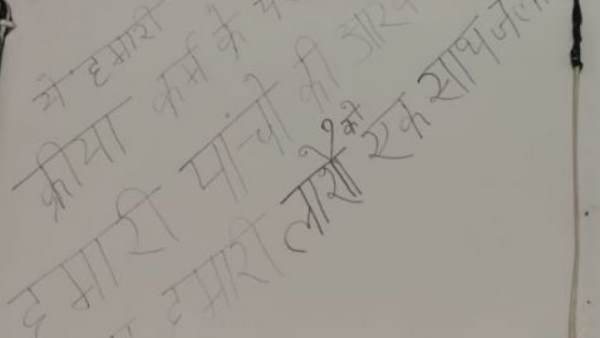 ये हमारी
क्रीया कर्म के
हमारी पांचो की
हमारी लाशो को एक साथ